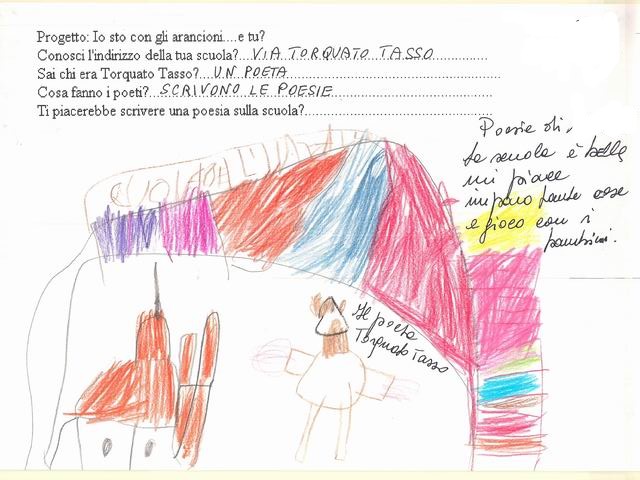 Progetto: Io sto con gli arancioni....e tu?
Conosci l'indirizzo della tua scuola?...VIA TORQUATO TASSO...............
Sai chi era Torquato Tasso?...UN POETA...............
Cosa fanno i poeti?...SCRIVONO LE POESIE...............
Ti piacerebbe scrivere una poesia sulla scuola?...............
Poesie di,
La scuola è bella
mi piace
imparo tante cose
e gioco con i
bambini.
Il poeta
Torquato Tasso